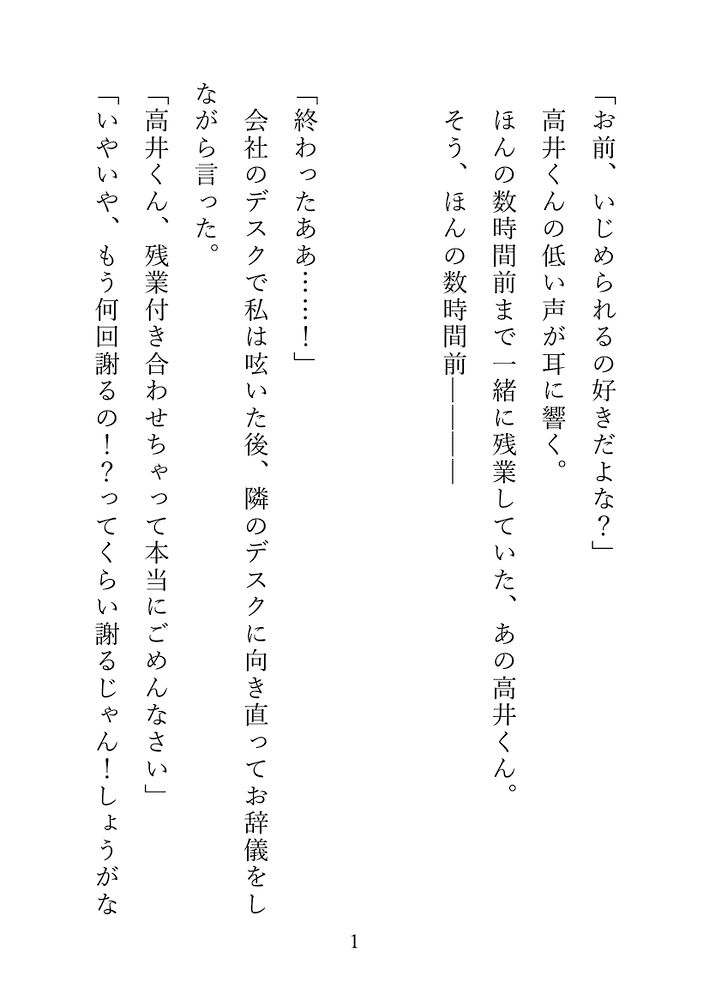 「お前、いじめられるの好きだよな？」
高井くんの低い声が耳に響く。
ほんの数時間前まで一緒に残業していた、あの高井くん。
そう、ほんの数時間前――――
「終わったああ……！」
会社のデスクで私は呟いた後、隣のデスクに向き直ってお辞儀をし
ながら言った。
「高井くん、残業付き合わせちゃって本当にごめんなさい」
「いやいや、もう何回謝るの！？ってくらい謝るじゃん！しょうがな
1